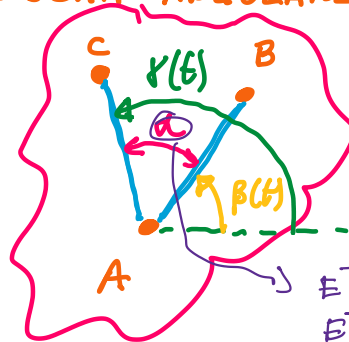 C
B
γ(t)
α
β(t)
A
E
E